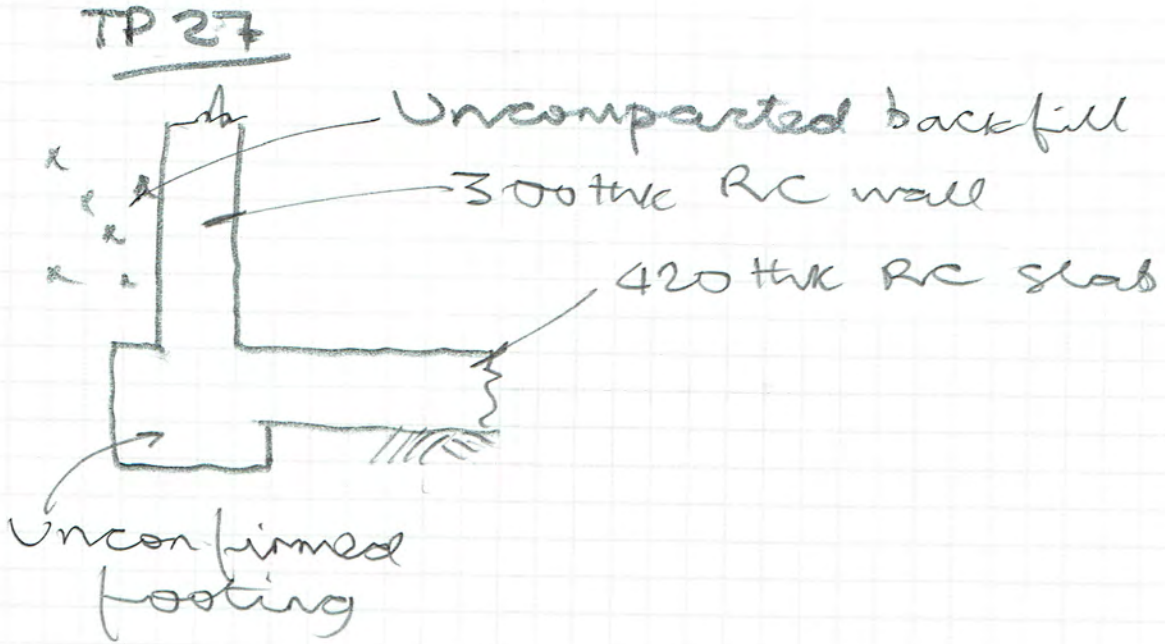 TP 27
Uncompacted backfill
300 thk RC wall
420 thk RC slab
Unconfirmed
footing